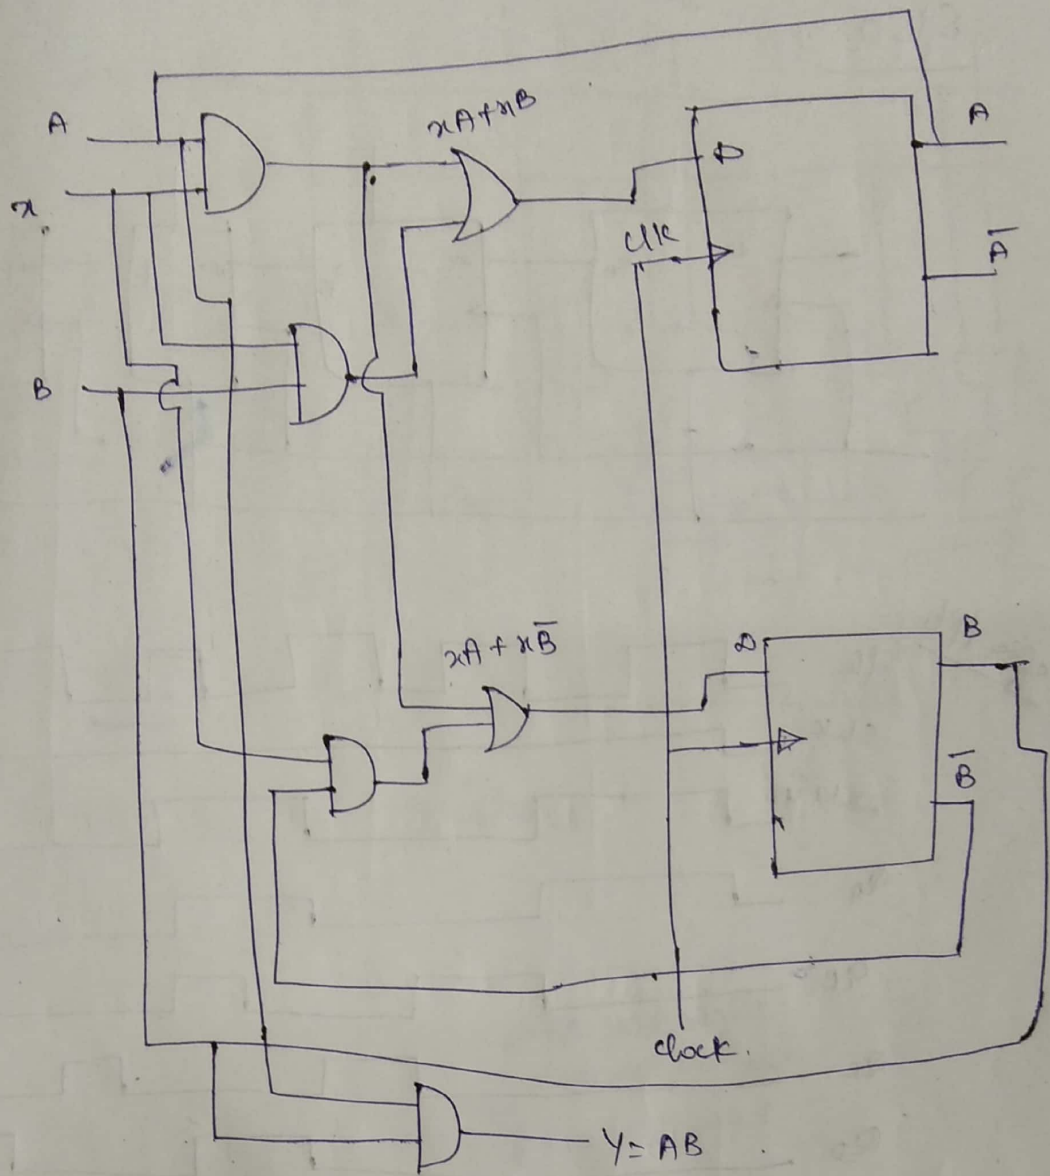 A
xA+xB
D
A
x
clk
A̅
B
xA+xB̅
D
B
B̅
clock.
Y= AB